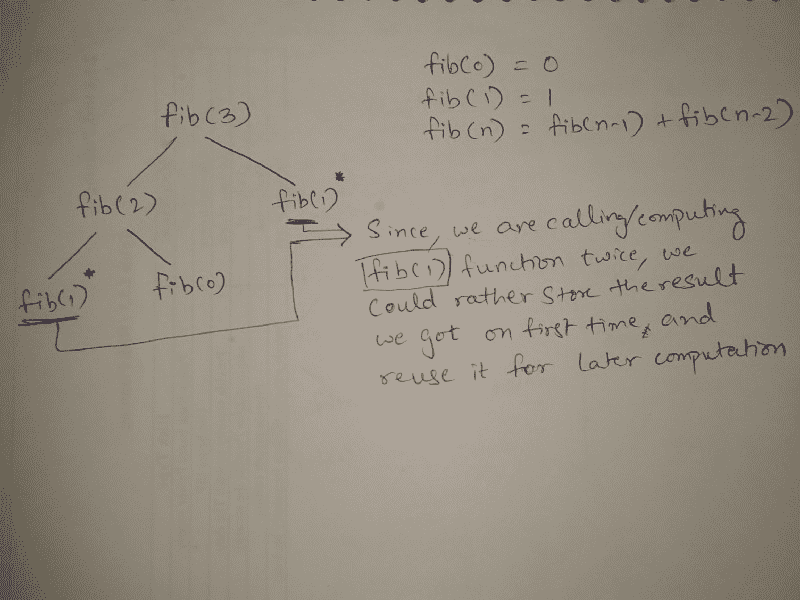 fib(0) = 0
fib(1) = 1
fib(n) = fib(n-1) + fib(n-2)
fib(3)
fib(2) fib(1)*
fib(1)* fib(0)
Since, we are calling/computing
fib(1) function twice, we
could rather store the result
we got on first time, and
reuse it for later computation